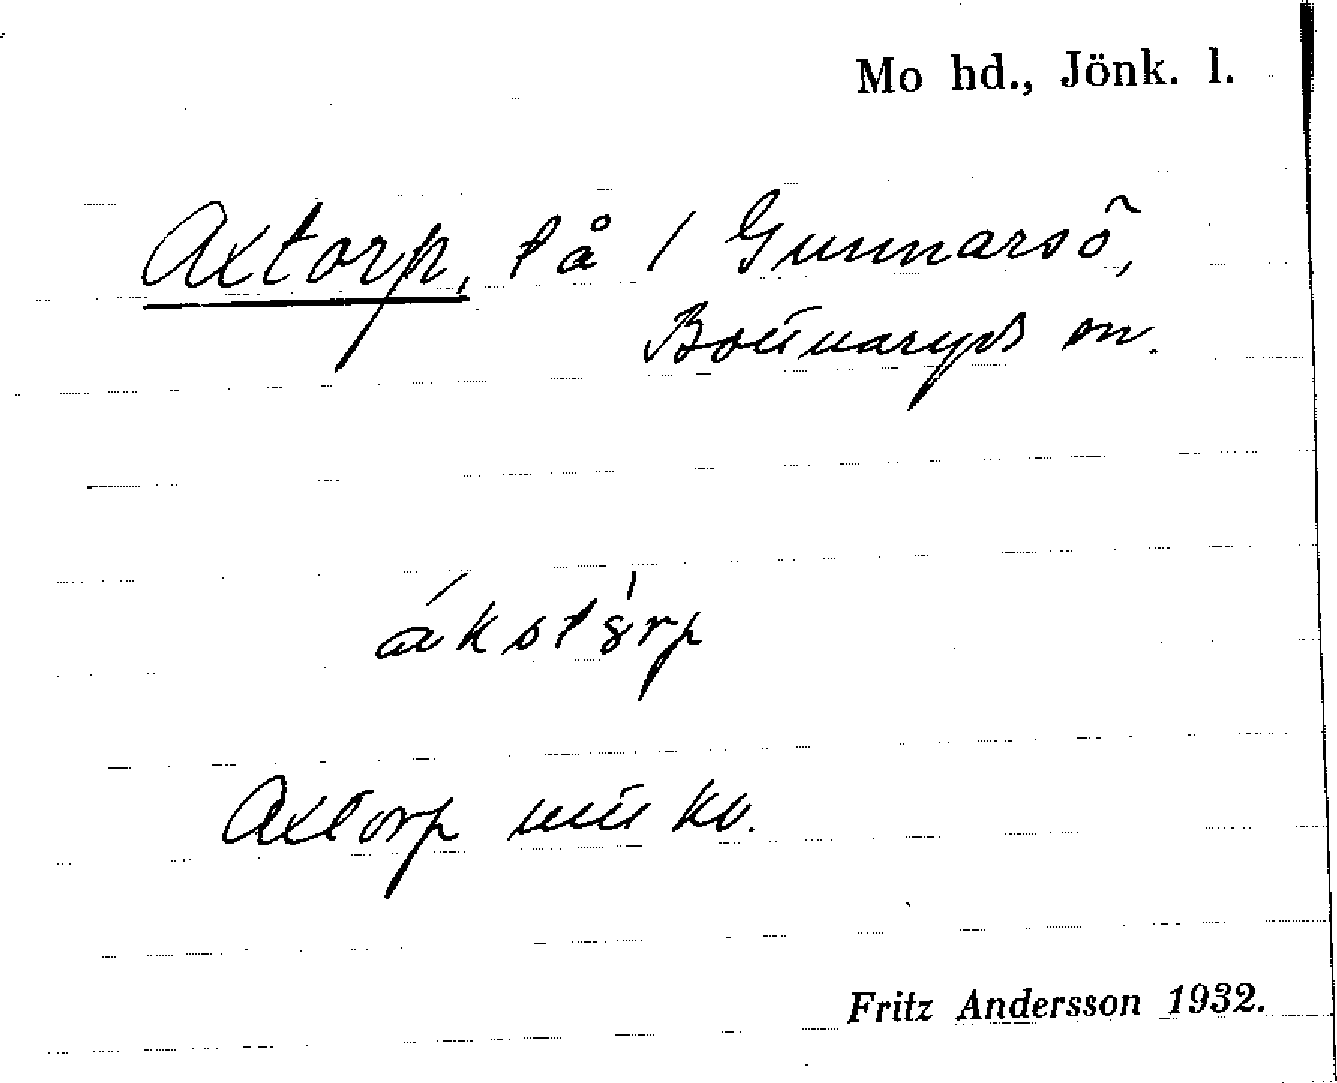 Mo hd., Jönk. l.
Axtorp, lå / Gunnarsö,
Bottnaryds sn.
ákstórp
Axtorp
Fritz Andersson 1932.